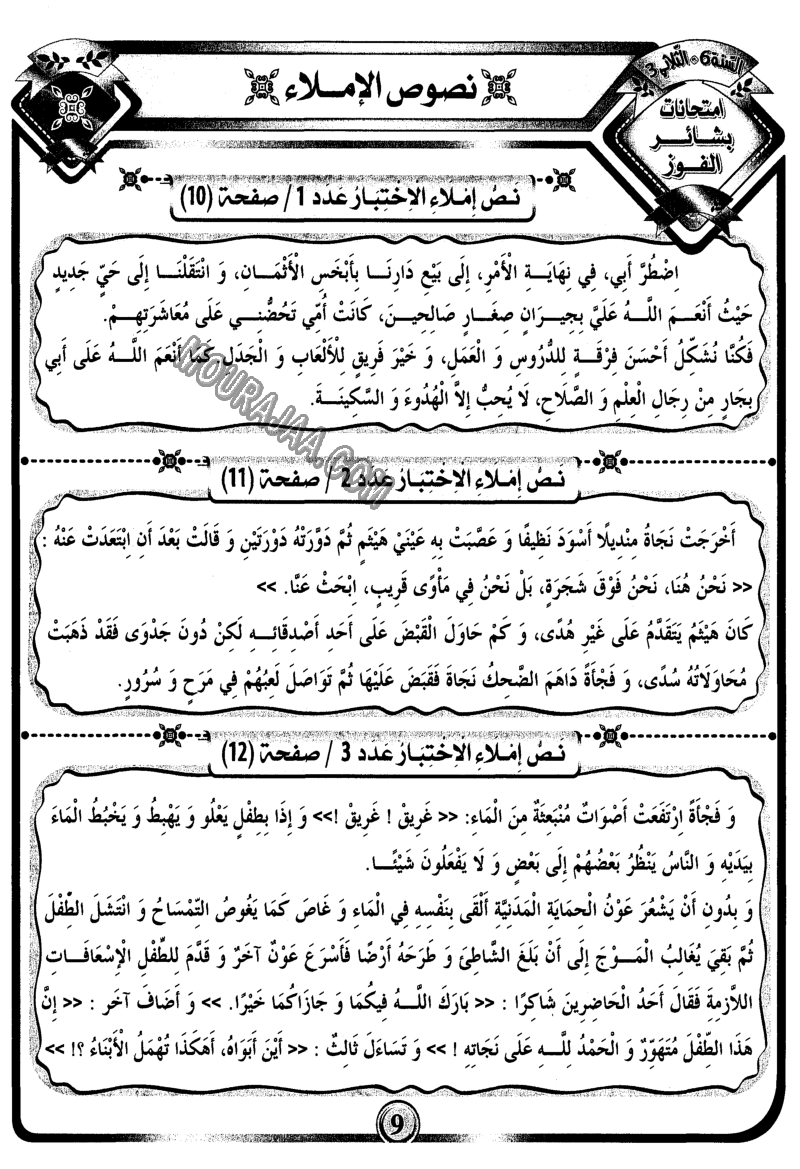 السّنة 6 • الثّلاثي 3
امتحانات
بشائر
الفوز
نصوص الإملاء
نَصُّ إِمْلَاءِ الِاخْتِبَارُ عَدَد 1 / صفحة (10)
اِضْطُرَّ أَبِي، فِي نِهَايَةِ الْأَمْرِ، إِلَى بَيْعِ دَارِنَا بِأَبْخَسِ الْأَثْمَانِ، وَ انْتَقَلْنَا إِلَى حَيٍّ جَدِيدٍ
حَيْثُ أَنْعَمَ اللهُ عَلَيَّ بِجِيرَانٍ صِغَارٍ صَالِحِينَ، كَانَتْ أُمِّي تَحُضُّنِي عَلَى مُعَاشَرَتِهِمْ.
فَكُنَّا نُشَكِّلُ أَحْسَنَ فِرْقَةٍ لِلدُّرُوسِ وَ الْعَمَلِ، وَ خَيْرَ فَرِيقٍ لِلْأَلْعَابِ وَ الْجَدَلِ كَمَا أَنْعَمَ اللهُ عَلَى أَبِي
بِجَارٍ مِنْ رِجَالِ الْعِلْمِ وَ الصَّلَاحِ، لَا يُحِبُّ إِلاَّ الْهُدُوءَ وَ السَّكِينَةَ.
MOURAJAA.COM
نَصُّ إِمْلَاءِ الِاخْتِبَارُ عَدَد 2 / صفحة (11)
أَخْرَجَتْ نَجَاةُ مِنْدِيلًا أَسْوَدَ نَظِيفًا وَ عَصَّبَتْ بِهِ عَيْنَيْ هَيْثَمٍ ثُمَّ دَوَّرَتْهُ دَوْرَتَيْنِ وَ قَالَتْ بَعْدَ أَنِ ابْتَعَدَتْ عَنْهُ :
<< نَحْنُ هُنَا، نَحْنُ فَوْقَ شَجَرَةٍ، بَلْ نَحْنُ فِي مَأْوًى قَرِيبٍ، ابْحَثْ عَنَّا. >>
كَانَ هَيْثَمُ يَتَقَدَّمُ عَلَى غَيْرِ هُدًى، وَ كَمْ حَاوَلَ الْقَبْضَ عَلَى أَحَدِ أَصْدِقَائِهِ لَكِنْ دُونَ جَدْوَى فَقَدْ ذَهَبَتْ
مُحَاوَلَاتُهُ سُدًى، وَ فَجْأَةً دَاهَمَ الضَّحِكُ نَجَاةَ فَقَبَضَ عَلَيْهَا ثُمَّ تَوَاصَلَ لَعِبُهُمْ فِي مَرَحٍ وَ سُرُورٍ.
نَصُّ إِمْلَاءِ الِاخْتِبَارُ عَدَد 3 / صفحة (12)
وَ فَجْأَةً ارْتَفَعَتْ أَصْوَاتٌ مُنْبَعِثَةٌ مِنَ الْمَاءِ: << غَرِيقْ ! غَرِيقْ !>> وَ إِذَا بِطِفْلٍ يَعْلُو وَ يَهْبِطُ وَ يَخْبُطُ الْمَاءَ
بِيَدَيْهِ وَ النَّاسُ يَنْظُرُ بَعْضُهُمْ إِلَى بَعْضٍ وَ لَا يَفْعَلُونَ شَيْئًا.
وَ بِدُونِ أَنْ يَشْعُرَ عَوْنُ الْحِمَايَةِ الْمَدَنِيَّةِ أَلْقَى بِنَفْسِهِ فِي الْمَاءِ وَ غَاصَ كَمَا يَغُوصُ التِّمْسَاحُ وَ انْتَشَلَ الطِّفْلَ
ثُمَّ بَقِيَ يُغَالِبُ الْمَوْجَ إِلَى أَنْ بَلَغَ الشَّاطِئَ وَ طَرَحَهُ أَرْضًا فَأَسْرَعَ عَوْنٌ آخَرُ وَ قَدَّمَ لِلطِّفْلِ الْإِسْعَافَاتِ
اللاَّزِمَةِ فَقَالَ أَحَدُ الْحَاضِرِينَ شَاكِرًا : << بَارَكَ اللهُ فِيكُمَا وَ جَازَاكُمَا خَيْرًا. >> وَ أَضَافَ آخَر : << إِنَّ
هَذَا الطِّفْلَ مُتَهَوِّرٌ وَ الْحَمْدُ لِلهِ عَلَى نَجَاتِهِ ! >> وَ تَسَاءَلَ ثَالِثٌ : << أَيْنَ أَبَوَاهُ، أَهَكَذَا تُهْمَلُ الْأَبْنَاءُ ؟! >>
9